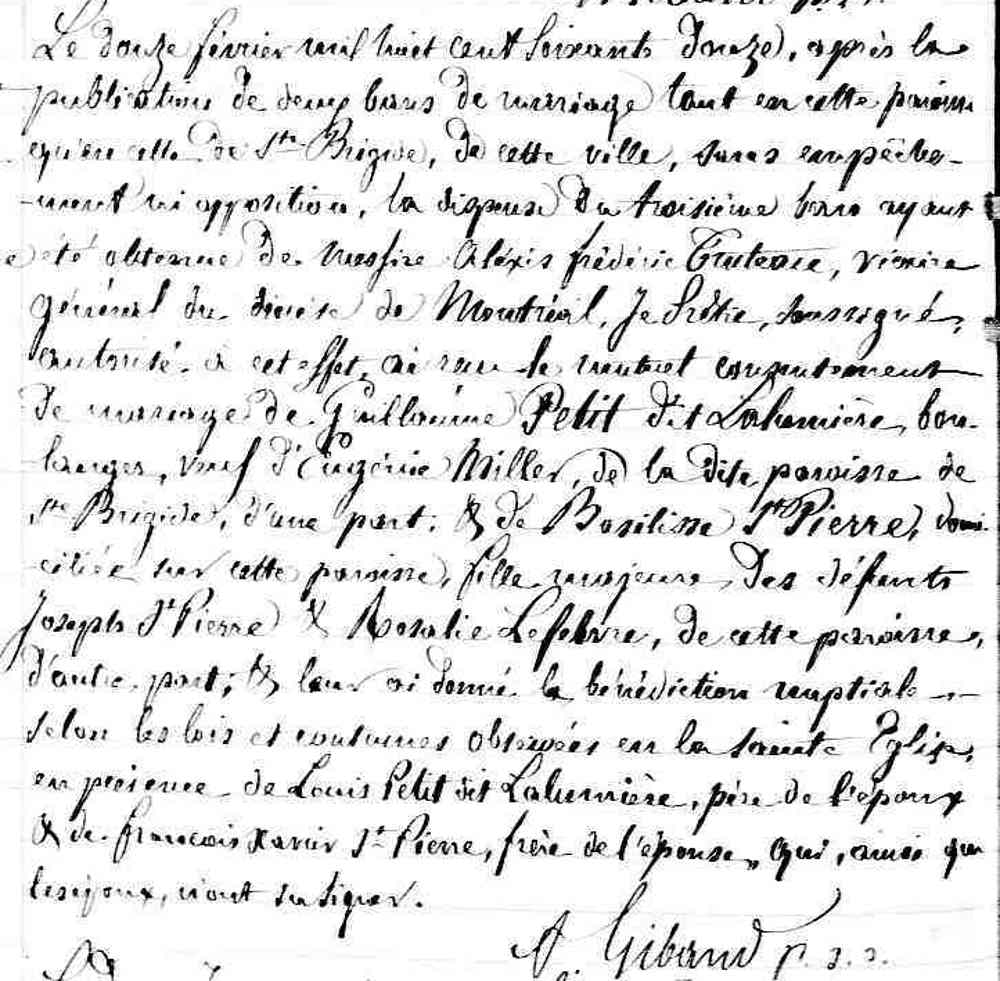 Le douze février mil huit cent soixante douze, après la
publication de deux bans de mariage tant en cette paroisse
qu'en celle de Ste Brigide, de cette ville, sans empêche-
-ment ni opposition, la dispense du troisième ban ayant
été obtenue de Messire Aléxis frédéric Truteau, vicaire
général du diocèse de Montréal, Je Prêtre, soussigné,
autorisé à cet effet, ai reçu le mutuel consentement
de mariage de Guillaume Petit dit Lalumière, bou-
langer, veuf d'Eugénie Miller, de la dite paroisse de
Ste Brigide, d'une part; & de Basilisse St Pierre, domi-
ciliée sur cette paroisse, fille majeure des défunts
Joseph St Pierre & Rosalie Lefebvre, de cette paroisse,
d'autre part; & leur ai donné la bénédiction nuptiale
selon les lois et coutumes observées en la sainte Eglise,
en présence de Louis Petit dit Lalumière, père de l'époux
& de françois Xavier St Pierre, frère de l'épouse, qui, ainsi que
les époux, n'ont su signer.
A. Gibaud p. s. s.